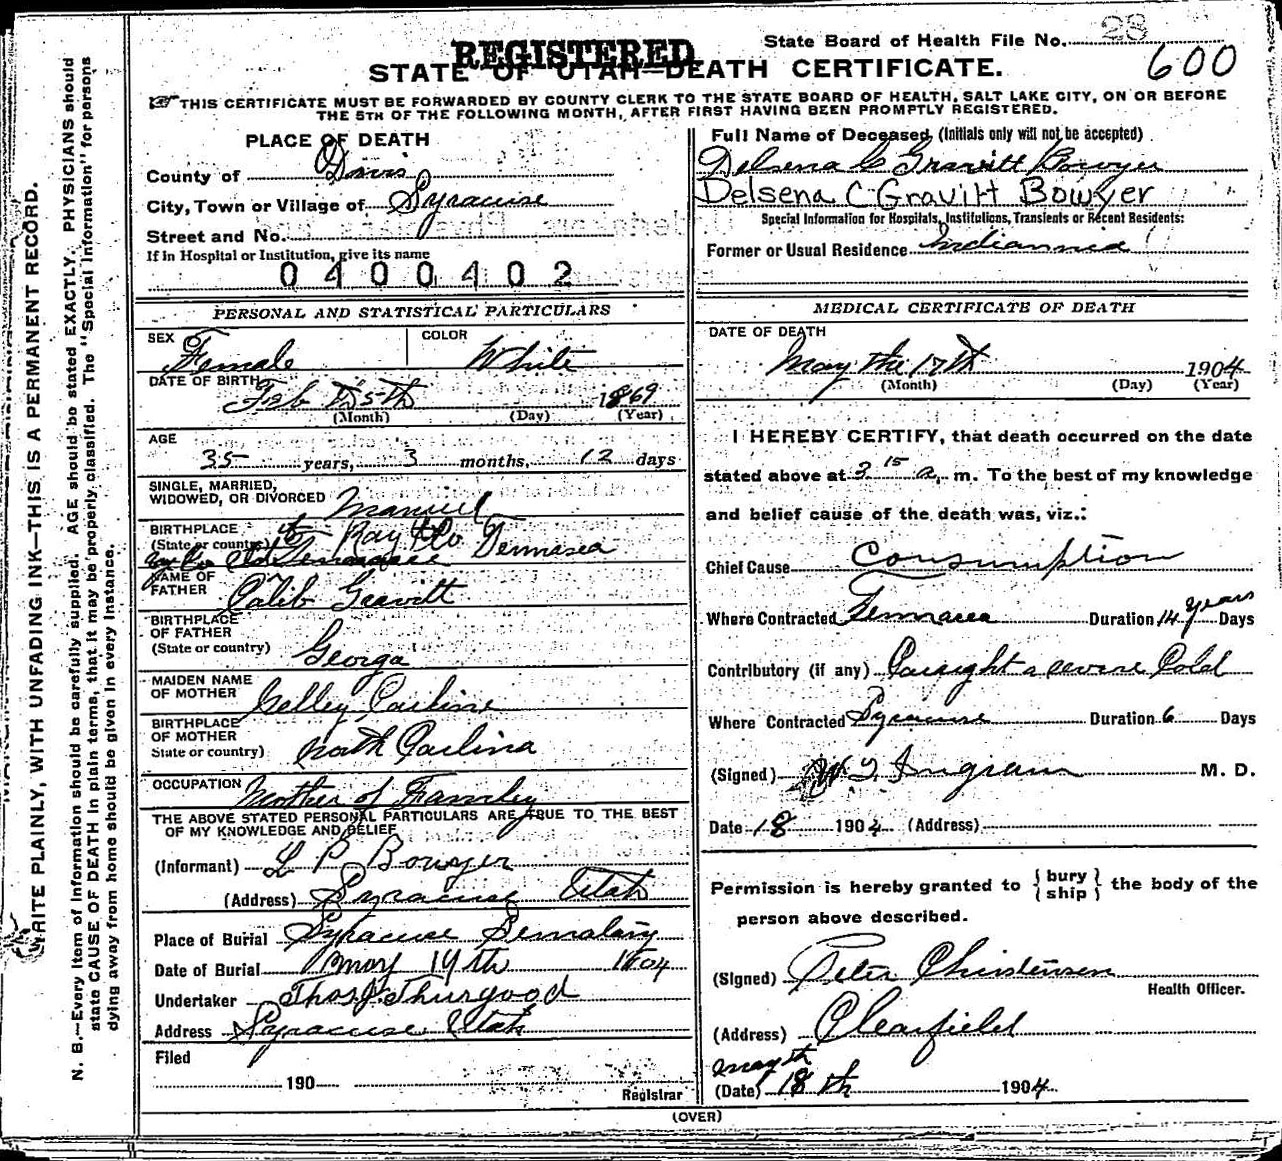 28
State Board of Health File No.
600
REGISTERED
STATE OF UTAH—DEATH CERTIFICATE.
THIS CERTIFICATE MUST BE FORWARDED BY COUNTY CLERK TO THE STATE BOARD OF HEALTH, SALT LAKE CITY, ON OR BEFORE
THE 5TH OF THE FOLLOWING MONTH, AFTER FIRST HAVING BEEN PROMPTLY REGISTERED.
WRITE PLAINLY, WITH UNFADING INK—THIS IS A PERMANENT RECORD.
N. B.—Every item of information should be carefully supplied. AGE should be stated EXACTLY. PHYSICIANS should
state CAUSE OF DEATH in plain terms, that it may be properly classified. The "Special Information" for persons
dying away from home should be given in every instance.
PLACE OF DEATH
County of Davis
City, Town or Village of Syracuse
Street and No.
If in Hospital or Institution, give its name
0400402
PERSONAL AND STATISTICAL PARTICULARS
SEX Female
COLOR White
DATE OF BIRTH Feb 5th 1869
(Month) (Day) (Year)
AGE
35 years, 3 months, 12 days
SINGLE, MARRIED,
WIDOWED, OR DIVORCED
BIRTHPLACE
(State or country) Ray Co Tennasea
NAME OF
FATHER Calib Gravitt
BIRTHPLACE
OF FATHER
(State or country) Georga
MAIDEN NAME
OF MOTHER
BIRTHPLACE
OF MOTHER
State or country) North Carlina
OCCUPATION Mother of Famley
THE ABOVE STATED PERSONAL PARTICULARS ARE TRUE TO THE BEST
OF MY KNOWLEDGE AND BELIEF
(Informant) L P Bowyer
(Address) Syracuse Utah
Place of Burial Syracuse Sematary
Date of Burial May 19th 1904
Undertaker Thos J. Thurgood
Address Syracuse Utah
Filed
190
Registrar
Full Name of Deceased (Initials only will not be accepted)
Delsena C Gravitt Bowyer
Delsena C Gravitt Bowyer
Special Information for Hospitals, Institutions, Transients or Recent Residents:
Former or Usual Residence
MEDICAL CERTIFICATE OF DEATH
DATE OF DEATH
May the 17th 1904
(Month) (Day) (Year)
I HEREBY CERTIFY, that death occurred on the date
stated above at 3 15 a. m. To the best of my knowledge
and belief cause of the death was, viz.:
Chief Cause Consumption
Where Contracted Tennasea Duration 14 years Days
Contributory (if any) Caught a severe Cold
Where Contracted Syracuse Duration 6 Days
(Signed) Ingram M. D.
Date 18 1904 (Address)
Permission is hereby granted to { bury
ship } the body of the
person above described.
(Signed) Peter Christensen
Health Officer.
(Address) Clearfield
May th
(Date) 18 th 1904
(OVER)